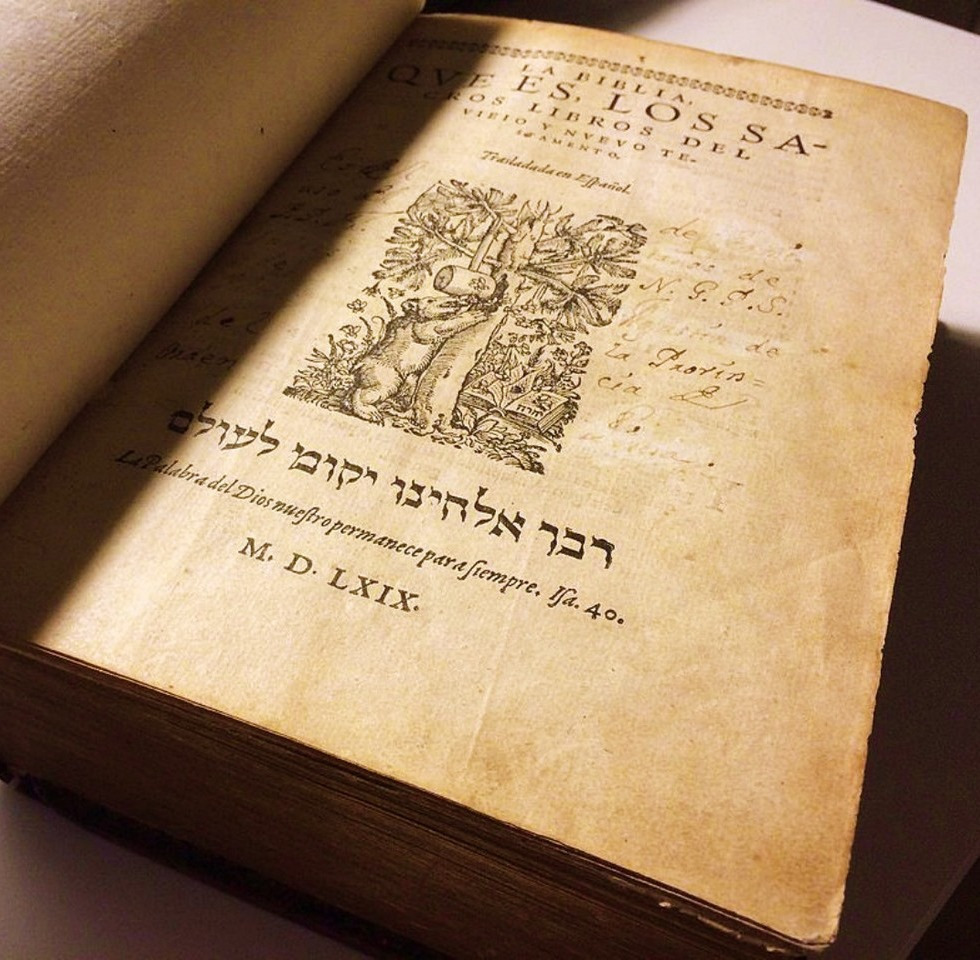 LA BIBLIA,
QVE ES, LOS SA-
CROS LIBROS DEL
VIEIO Y NVEVO TE-
STAMENTO.
Trasladada en Eſpañol.
de
N. G. P. S.
de
la Provin=
cia
דבר אלהינו יקום לעולם
La Palabra del Dios nueſtro permanece para ſiempre. Iſa. 40.
M. D. LXIX.